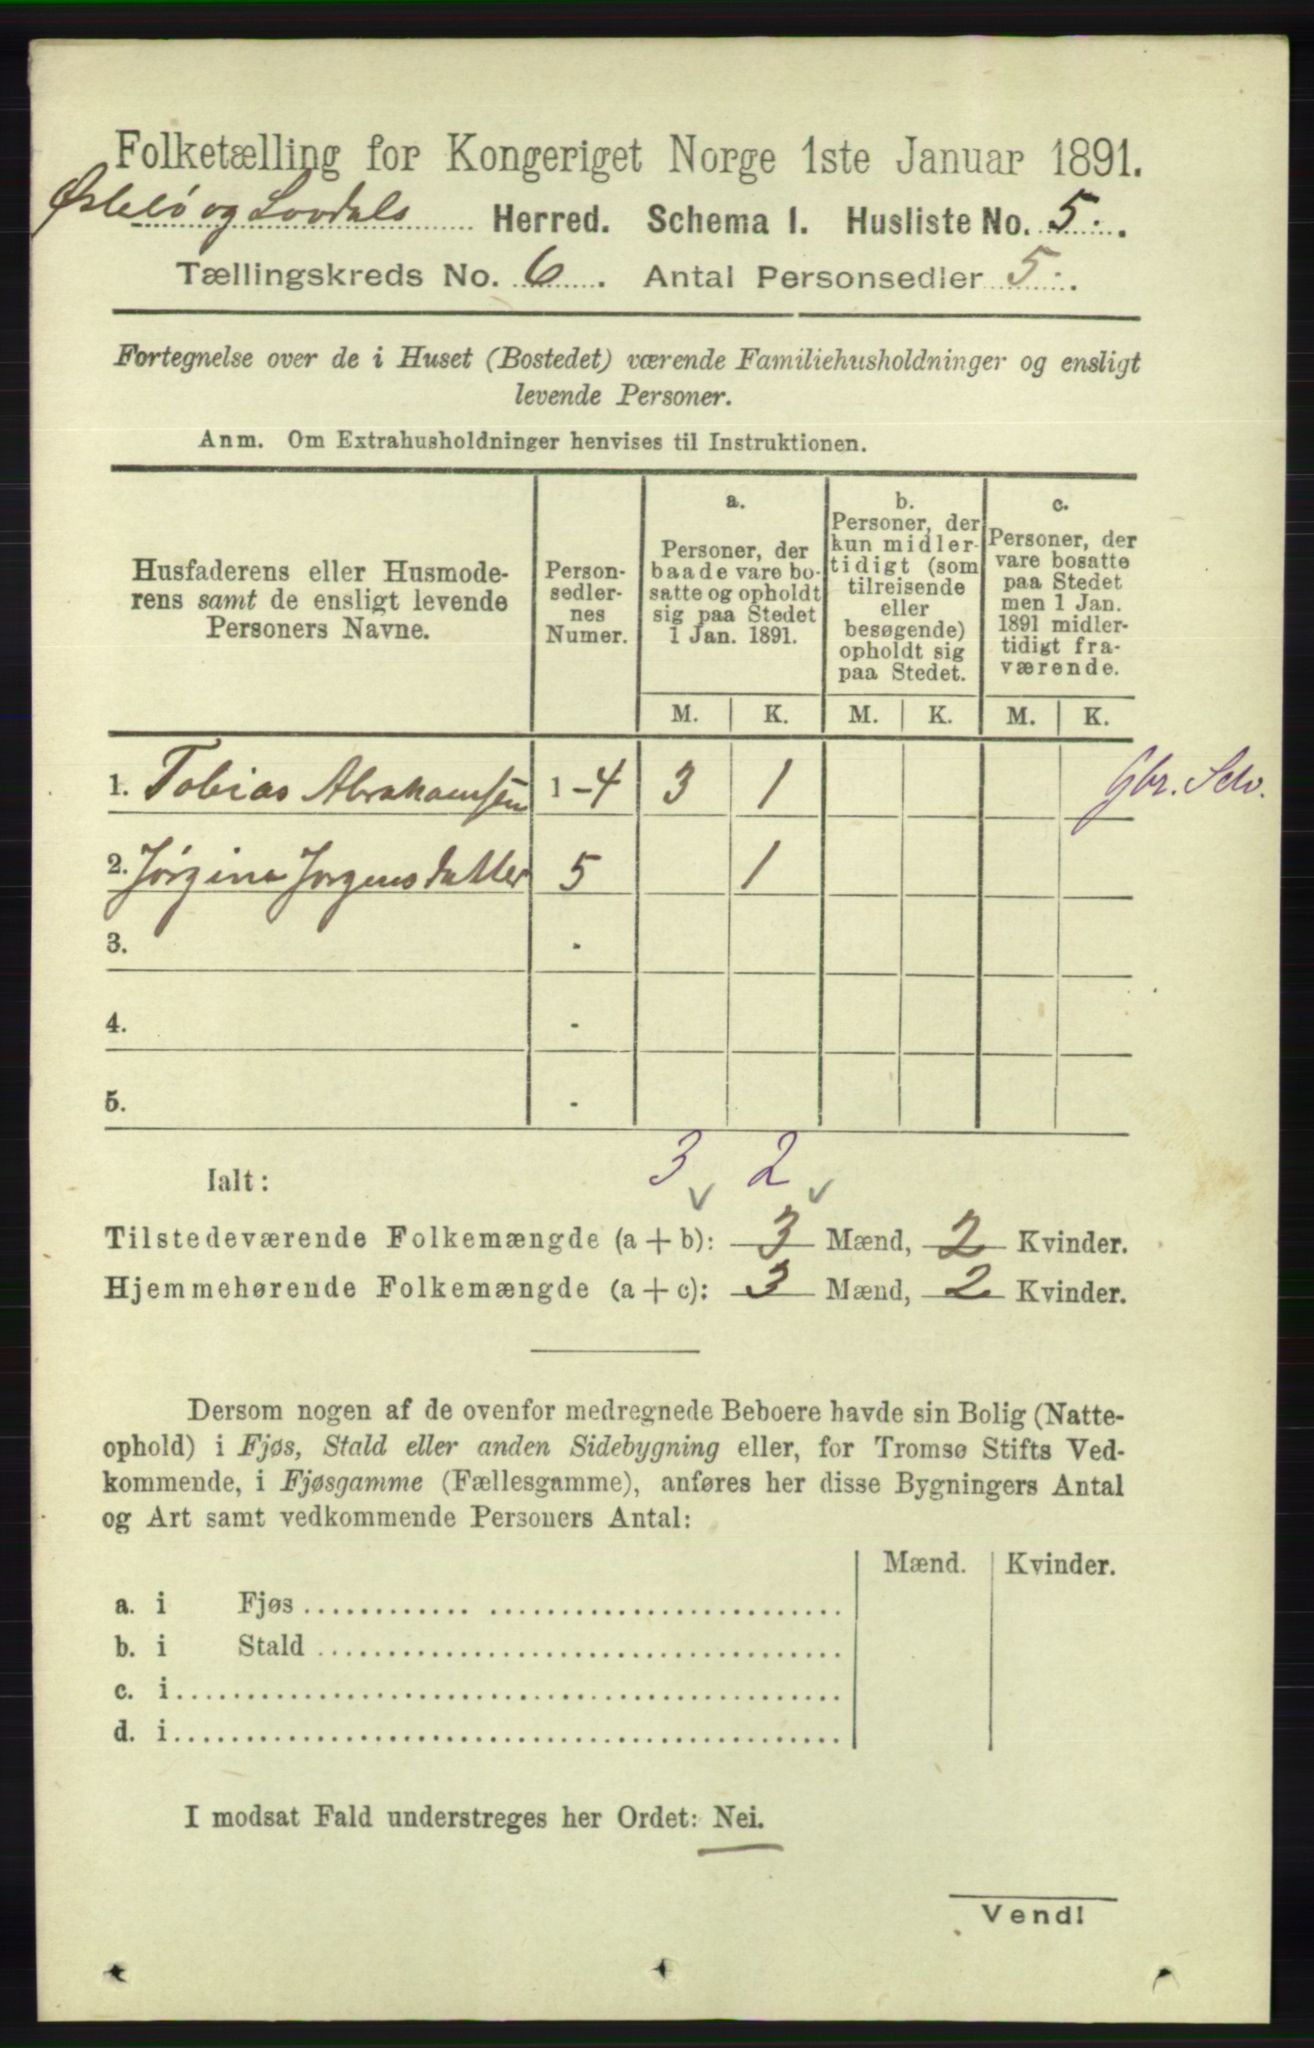 Folketælling for Kongeriget Norge 1ste Januar 1891.
Øslebø og Lovdals Herred. Schema I. Husliste No. 5.
Tællingskreds No. 6. Antal Personsedler 5.
Fortegnelse over de i Huset (Bostedet) værende Familiehusholdninger og ensligt
levende Personer.
Anm. Om Extrahusholdninger henvises til Instruktionen.
Husfaderens eller Husmode-
rens samt de ensligt levende
Personers Navne.
Person-
sedler-
nes
Numer.
a.
Personer, der
baade vare bo-
satte og opholdt
sig paa Stedet
1 Jan. 1891.
b.
Personer, der
kun midler-
tidigt (som
tilreisende
eller
besøgende)
opholdt sig
paa Stedet.
c.
Personer, der
vare bosatte
paa Stedet
men 1 Jan.
1891 midler-
tidigt fra-
værende.
M. K. M. K. M. K.
1. Tobias Abrahamsen 1-4 3 1 Gbr. Selv.
2. Jørgine Jorgensdatter 5 1
3. -
4. -
5. -
3 2
Ialt:
Tilstedeværende Folkemængde (a + b): 3 Mænd, 2 Kvinder.
Hjemmehørende Folkemængde (a + c): 3 Mænd, 2 Kvinder.
Dersom nogen af de ovenfor medregnede Beboere havde sin Bolig (Natte-
ophold) i Fjøs, Stald eller anden Sidebygning eller, for Tromsø Stifts Ved-
kommende, i Fjøsgamme (Fællesgamme), anføres her disse Bygningers Antal
og Art samt vedkommende Personers Antal:
Mænd. Kvinder.
a. i Fjøs
b. i Stald
c. i
d. i
I modsat Fald understreges her Ordet: Nei.
Vend!